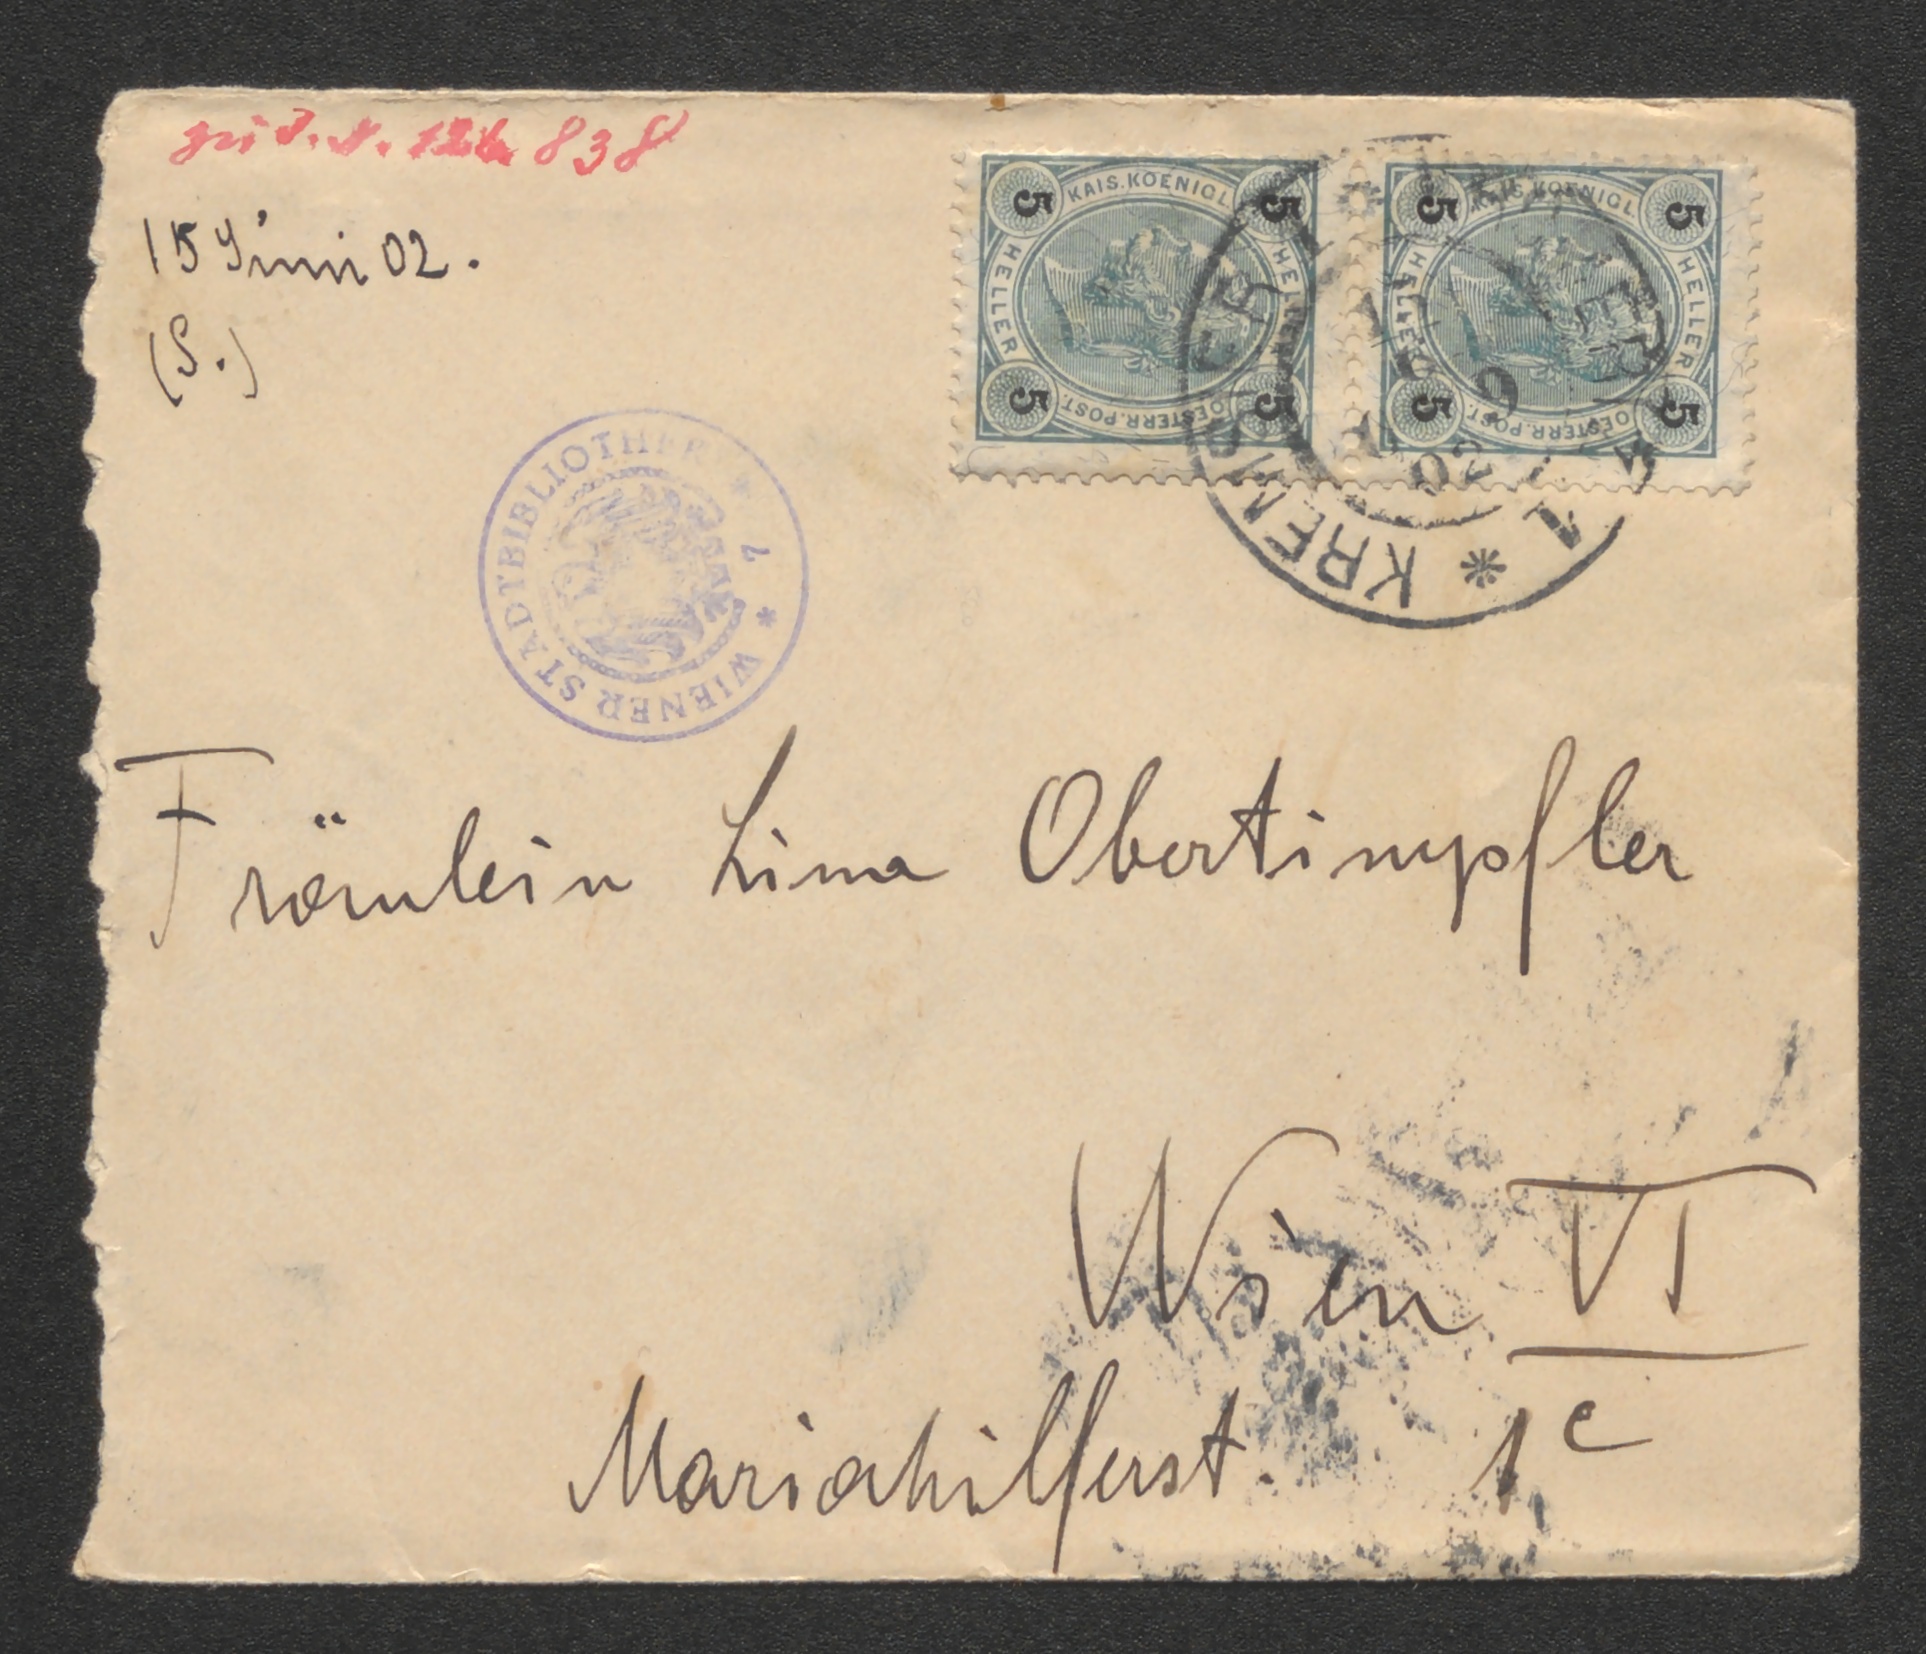 838
15 Juni 02.
(S.)
5 KAIS. KOENIGL. 5
HELLER HELLER
5 OESTERR. POST. 5
5 KAIS. KOENIGL. 5
HELLER HELLER
5 OESTERR. POST. 5
* KREMSIER
15 6 02
* WIENER STADTBIBLIOTHEK *
Fräulein Lina Obertimpfler
Wien VI
Mariahilferst. 1c